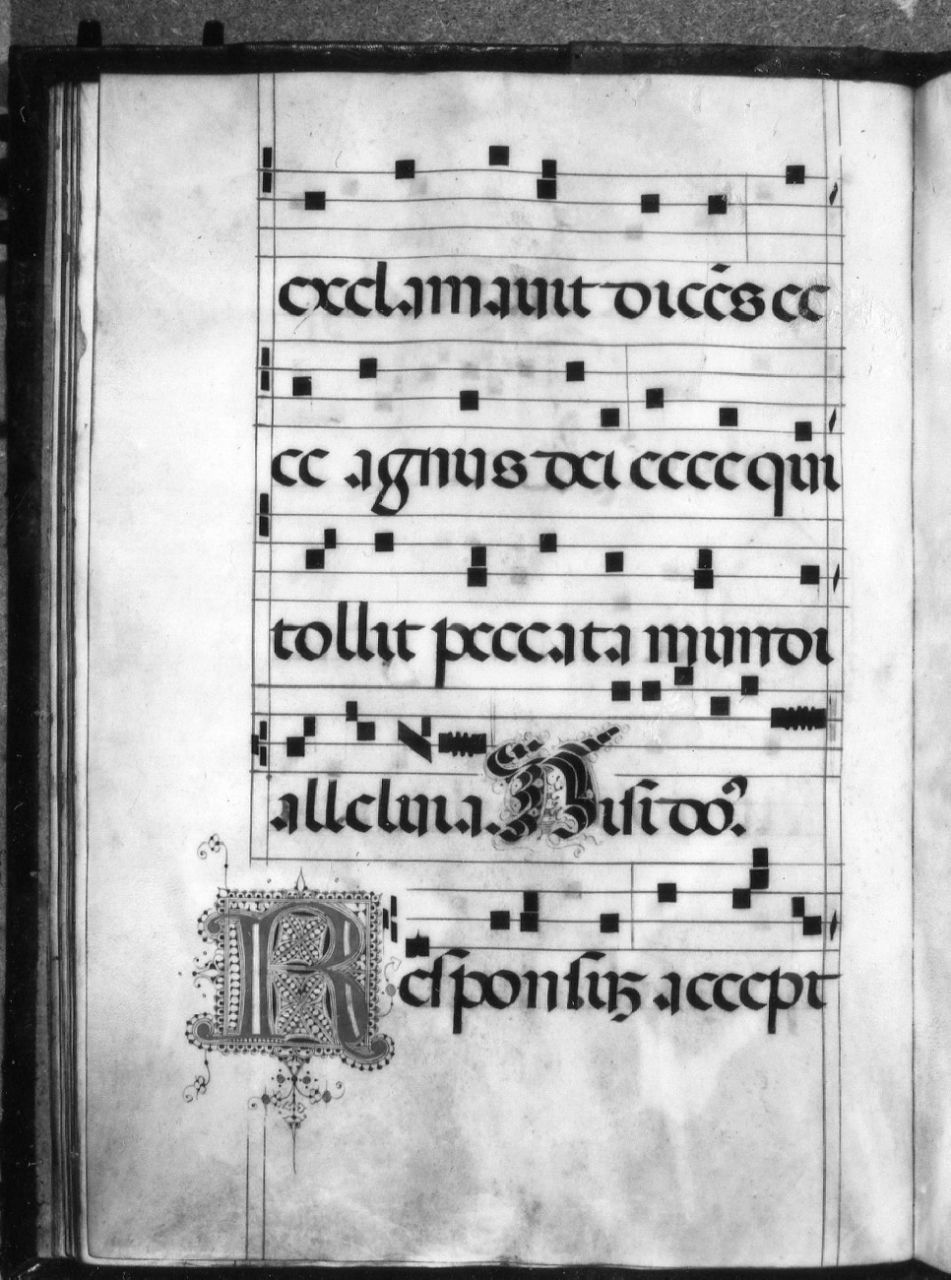 exclamauit dicēs ec
ce agnus dei ecce qui
tollit peccata mundi
alleluia. Nisi do⁹.
Responsuȝ accept